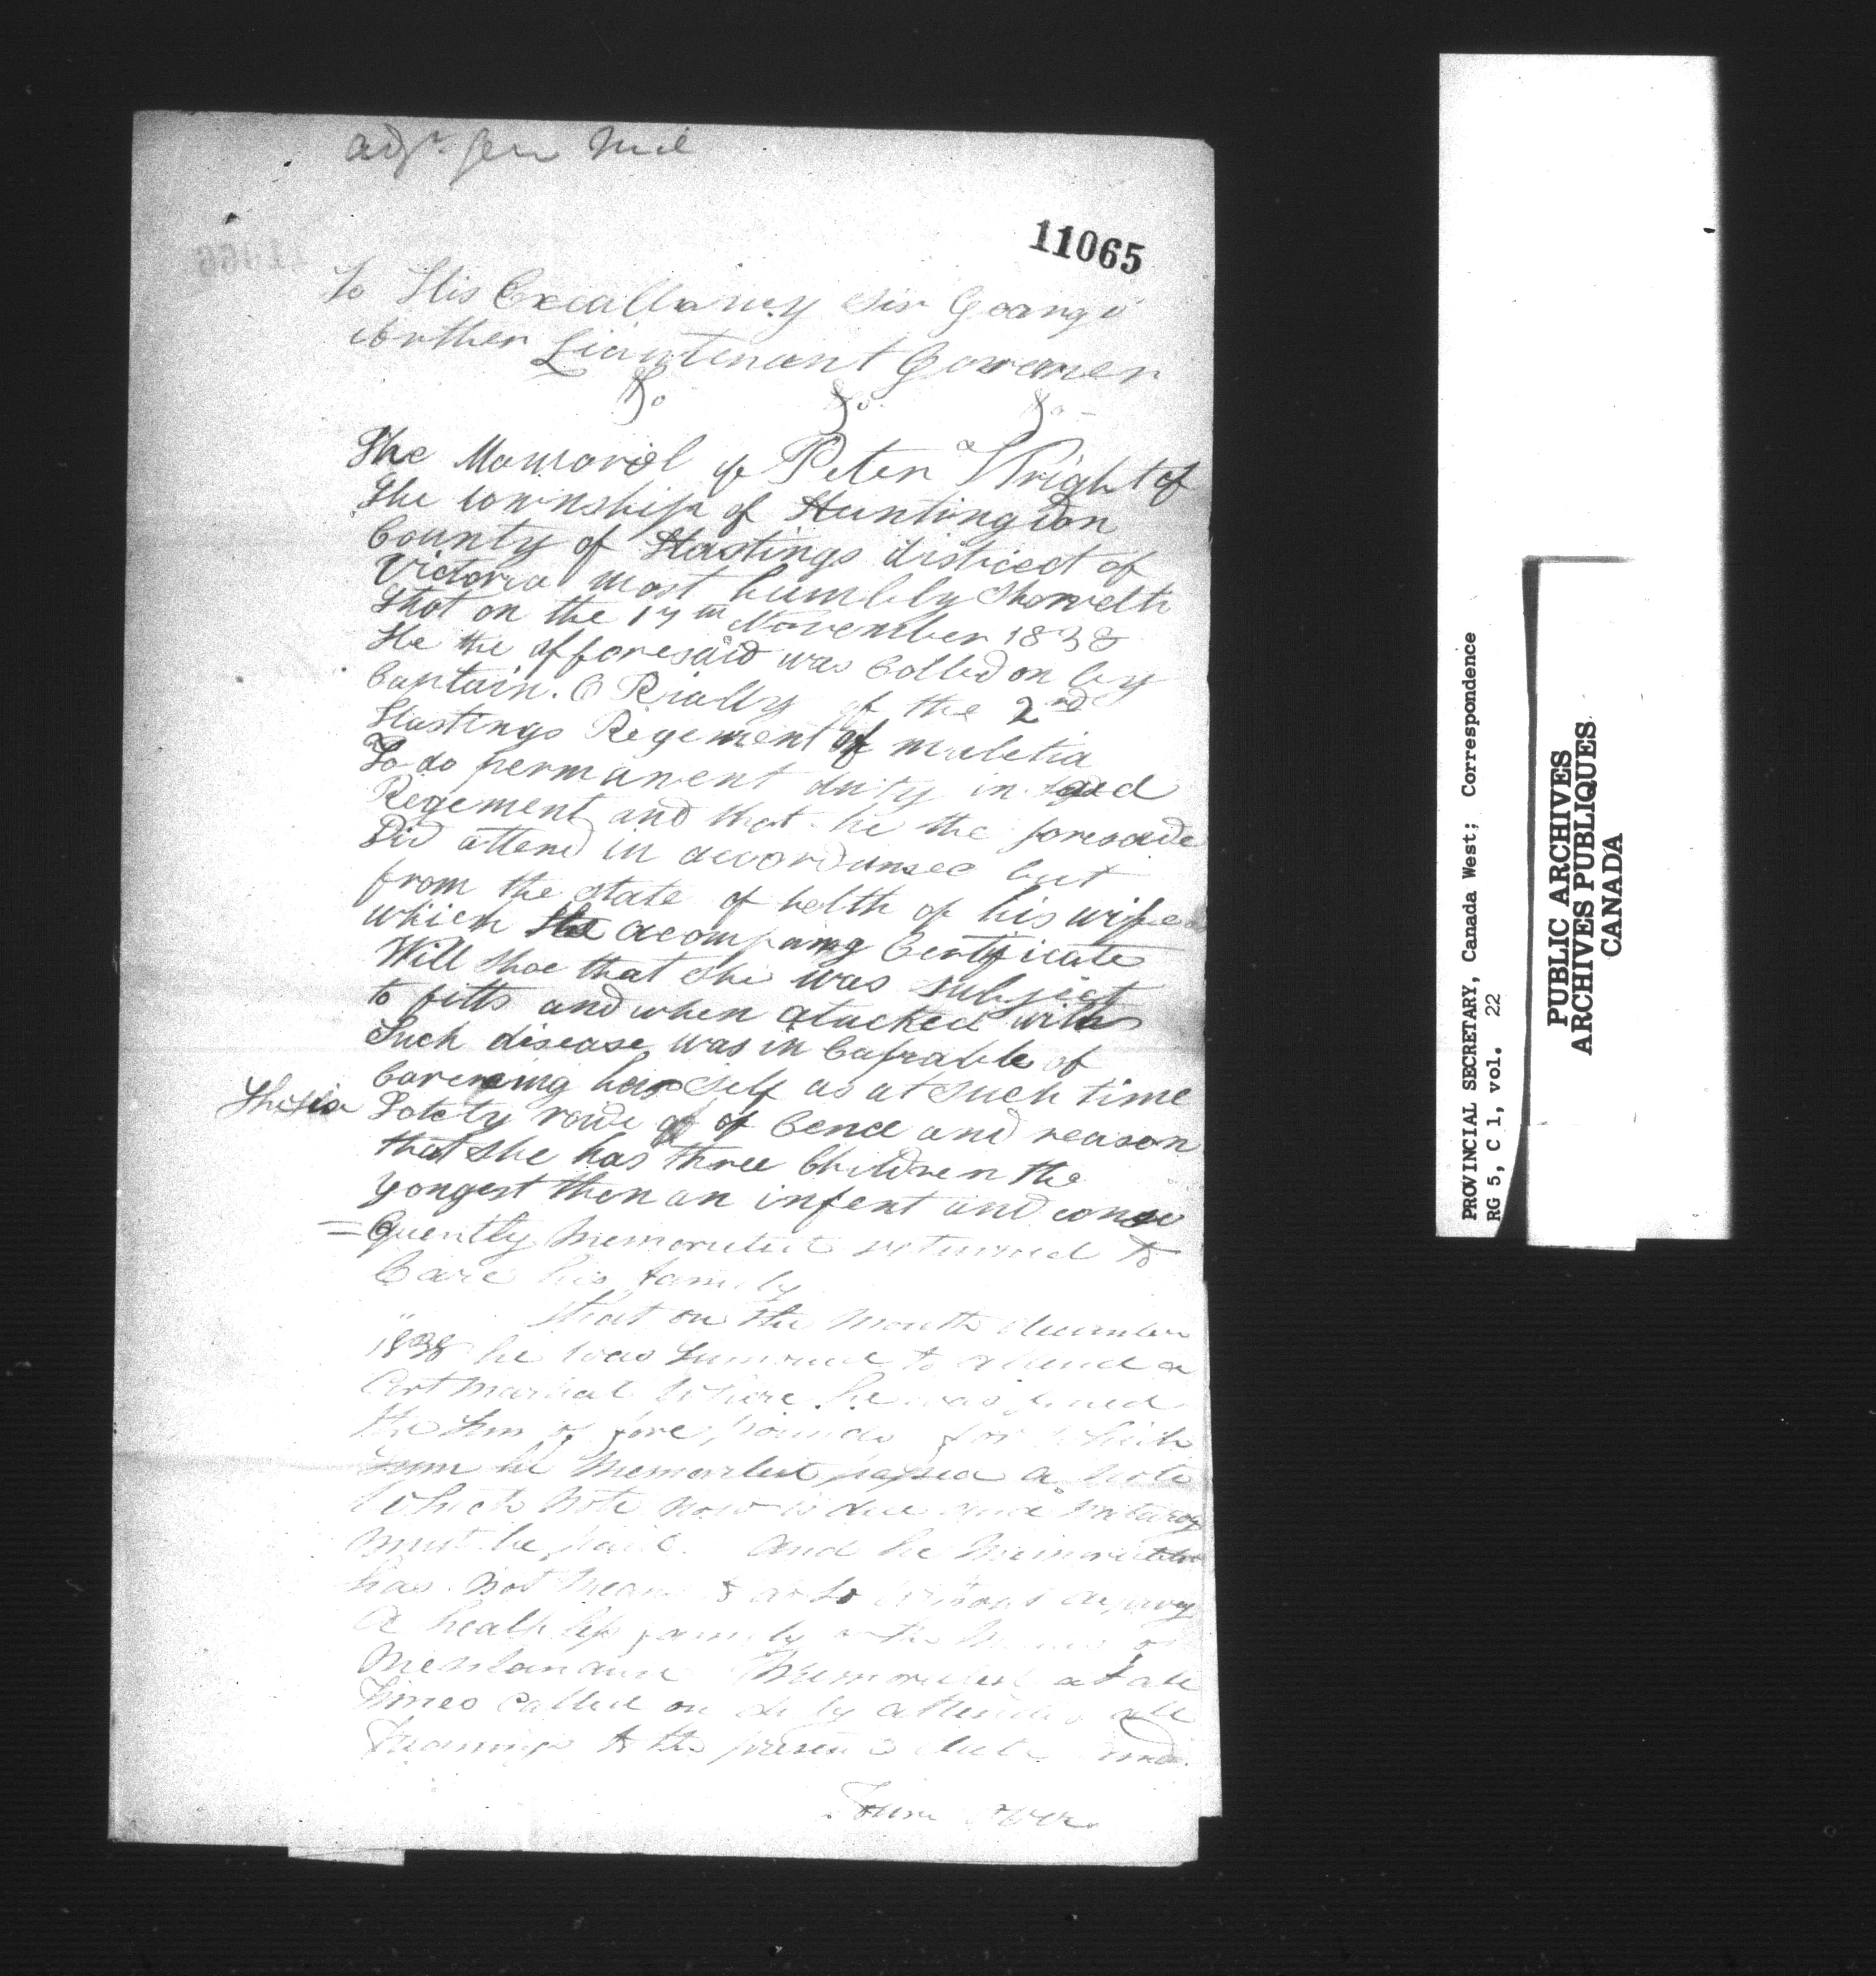 adjt Gen Mil
11065
To His Excallancy Sir George
Arther Lieutenant Governer
&c &c &c
The Momorial of Peter Wright of
The township of Huntingdon
County of Hastings district of
Victoria most humbly Showeth
that on the 17th November 1838
He the afforesaid was Called on by
Captain. O Rially of the 2nd
Hastings Regement of muletia
To do permanent duty in said
Regement and that he the foresaide
Did attend in accordansce but
from the state of helth of his wife
which the acompaing Certificate
Will shoe that she was subject
to fitts and when atacked with
Such disease was in Capable of
Careing her self as at such time
She is Totely voide of Cence and reason
that she has three Children the
yongest then an infent and conse
=quently Memorielist returned to
Care his family
that on the Month December
1838 he was Summned to attend a
Cort Martial Where he was fined
the sum of five pounds for Which
sum he Memorlist passed a Note
Which Note now is due and
must be paid. And he
has not Means
a family
Memorilist at all
times called on duty attended all
Traonings to the present date and
Turn over
PROVINCIAL SECRETARY, Canada West; Correspondence
RG 5, C 1, vol. 22
PUBLIC ARCHIVES
ARCHIVES PUBLIQUES
CANADA